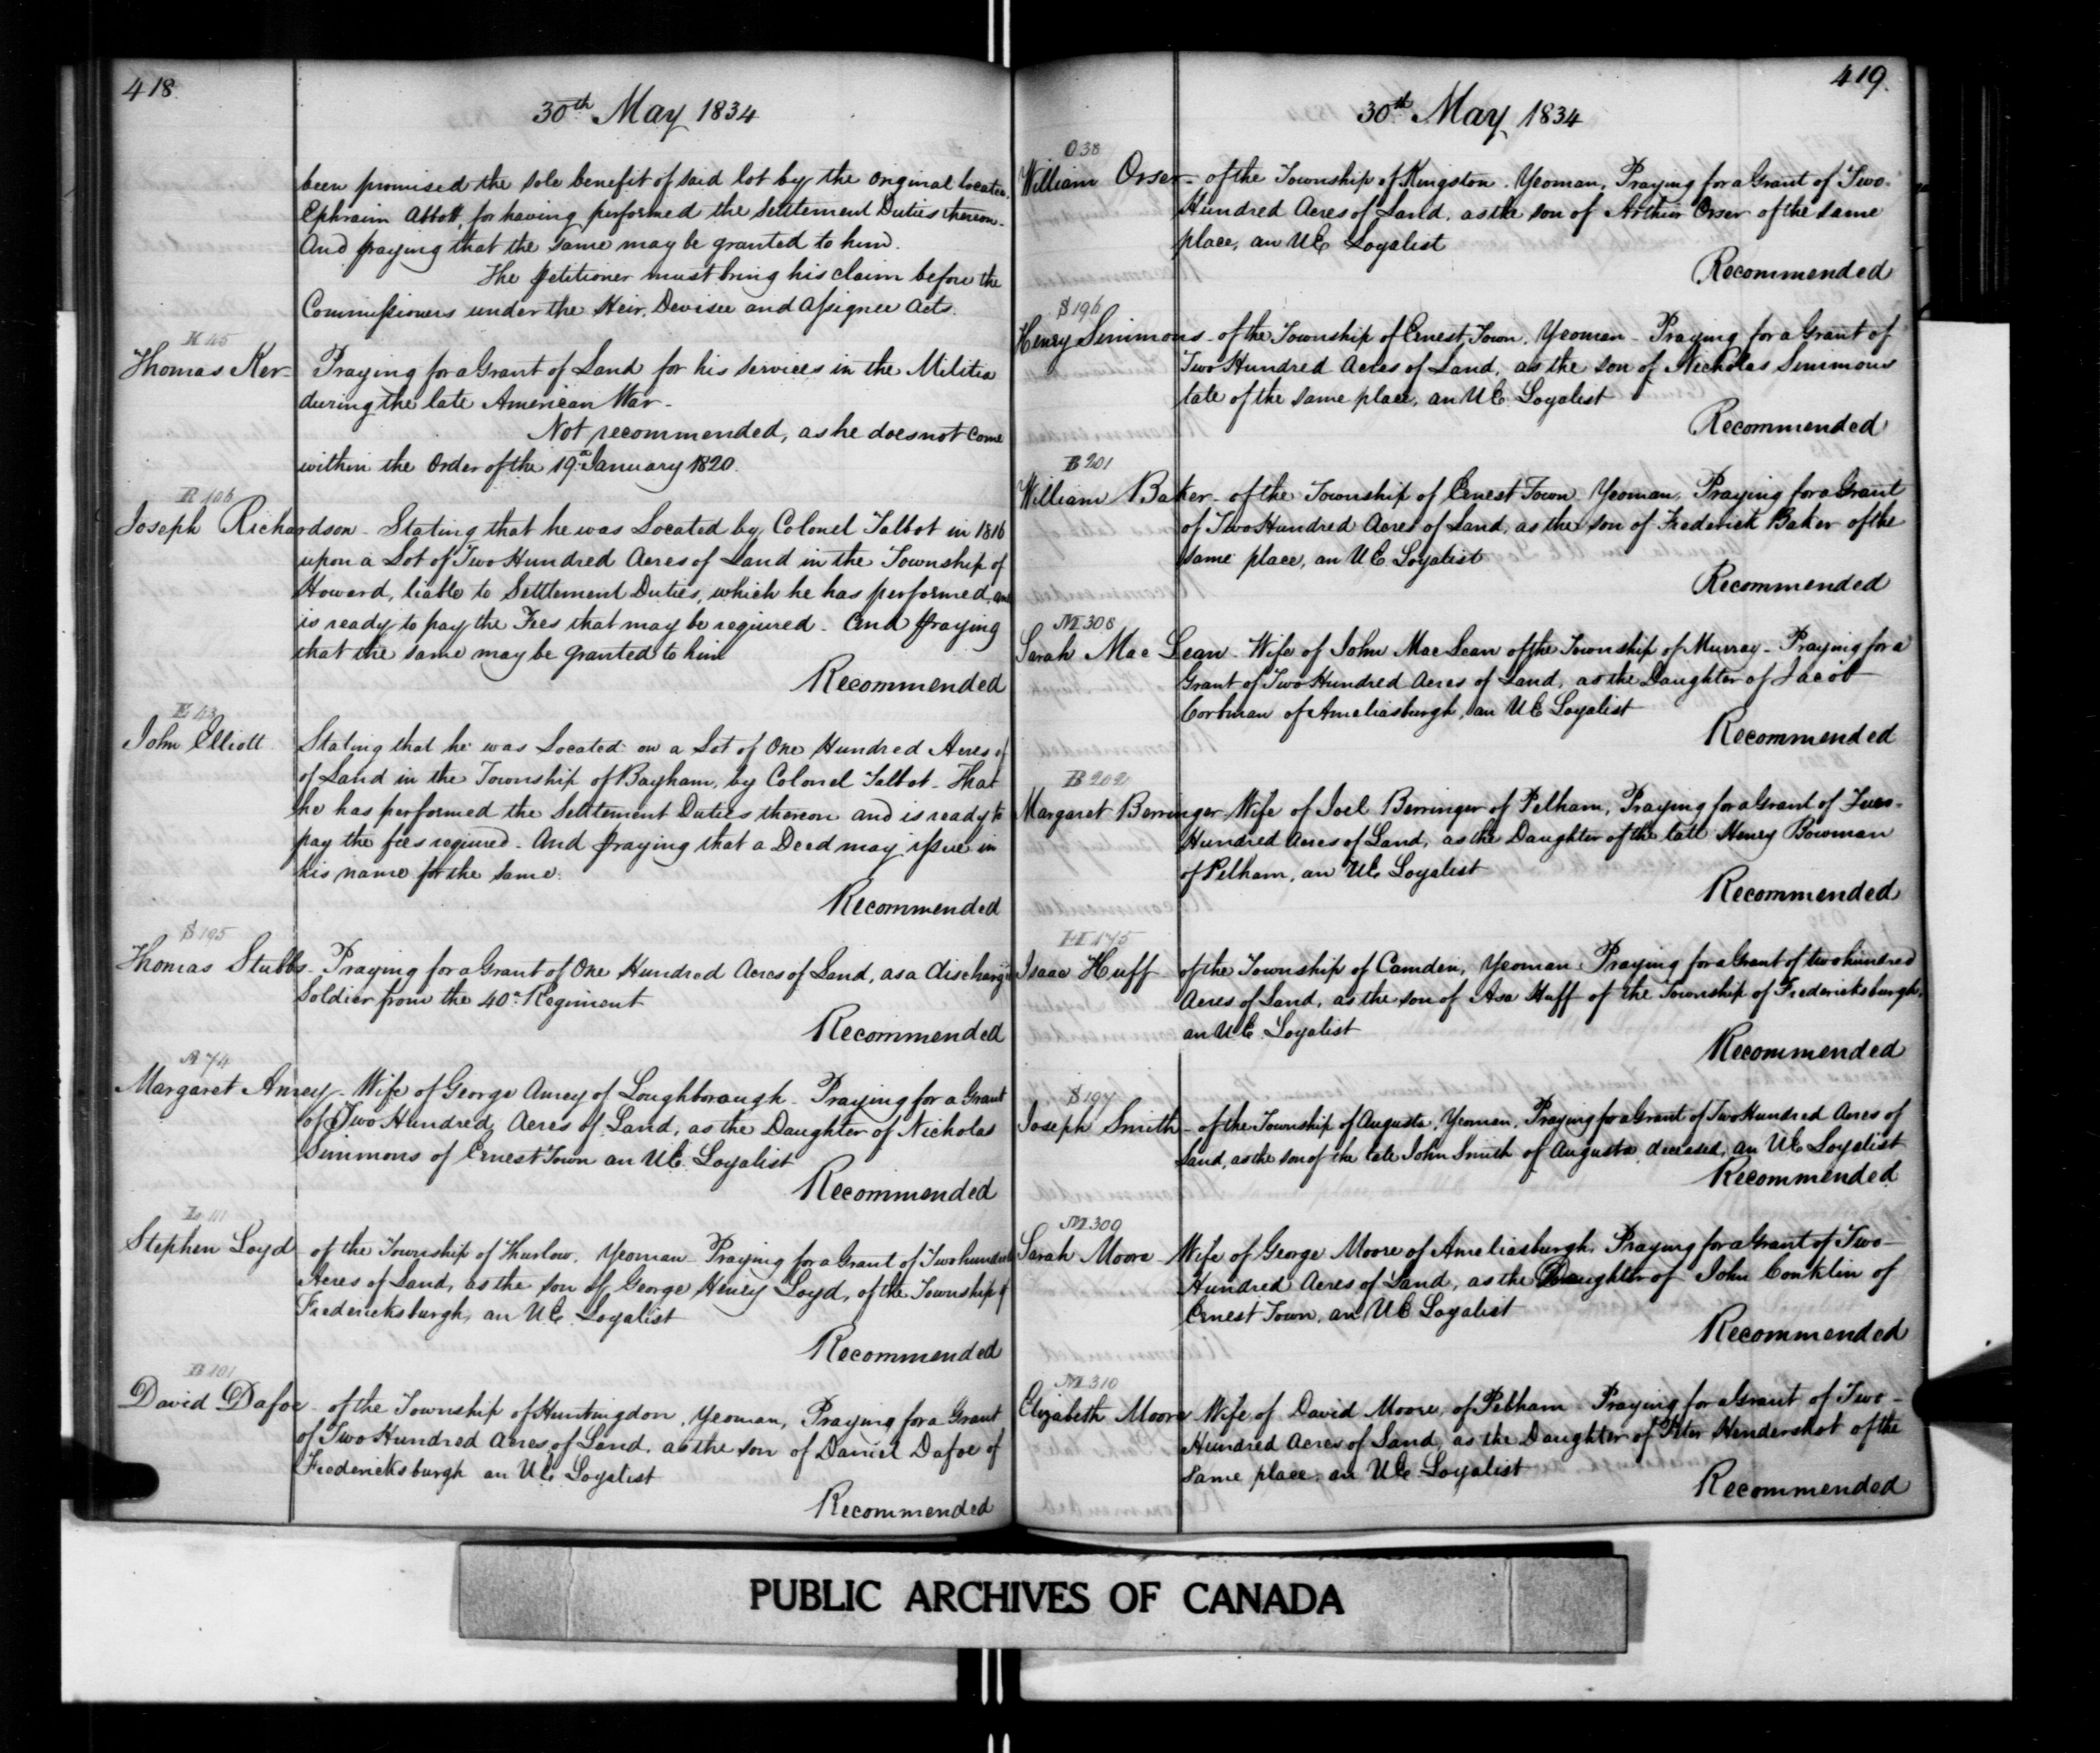 418
30th May 1834
been promised the sole benefit of said lot by the original locatee,
Ephraim Abbott, for having performed the Settlement Duties thereon.
And praying that the same may be granted to him.
The petitioner must bring his claim before the
Commissioners under the Heir, Devisee and Assignee Acts.
K 45
Thomas Ker - Praying for a Grant of Land for his services in the Militia
during the late American War -
Not recommended, as he does not come
within the Order of the 19th January 1820.
R 106
Joseph Richardson - Stating that he was Located by Colonel Talbot in 1816
upon a Lot of Two Hundred Acres of Land in the Township of
Howard, liable to Settlement Duties, which he has performed, and
is ready to pay the Fees that may be required - And praying
that the same may be granted to him
Recommended
E 43
John Elliott Stating that he was Located on a Lot of One Hundred Acres of
of Land in the Township of Bayham, by Colonel Talbot - That
he has performed the Settlement Duties thereon and is ready to
pay the fees required - And praying that a Deed may issue in
his name for the same.
Recommended
S 195
Thomas Stubbs - Praying for a Grant of One Hundred Acres of Land, as a discharged
Soldier from the 40th Regiment
Recommended
A 74
Margaret Amey - Wife of George Amey of Loughborough - Praying for a Grant
of Two Hundred Acres of Land, as the Daughter of Nicholas
Simmons of Ernest Town an U.E. Loyalist
Recommended
Stephen Loyd of the Township of Thurlow, Yeoman - Praying for a Grant of Two hundred
Acres of Land, as the son of George Henry Loyd, of the Township of
Fredericksburgh, an U.E. Loyalist
Recommended
David Dafoe - of the Township of Huntingdon, Yeoman, Praying for a Grant
of Two Hundred Acres of Land, as the son of Daniel Dafoe of
Fredericksburgh an U.E. Loyalist
Recommended
419.
30th May 1834
O 38
William Orser - of the Township of Kingston, Yeoman, Praying for a Grant of Two
Hundred Acres of Land, as the son of Arthur Orser of the same
place, an U.E. Loyalist
Recommended
S 196
Henry Simmons - of the Township of Ernest Town, Yeoman - Praying for a Grant of
Two Hundred Acres of Land, as the son of Nicholas Simmons
late of the same place, an U.E. Loyalist
Recommended
B 201
William Baker - of the Township of Ernest Town Yeoman, Praying for a Grant
of Two Hundred Acres of Land, as the son of Frederick Baker of the
same place, an U.E. Loyalist
Recommended
M 308
Sarah Mac Lean - Wife of John Mac Lean of the Township of Murray - Praying for a
Grant of Two Hundred Acres of Land, as the Daughter of Jacob
Corbman of Ameliasburgh, an U.E. Loyalist
Recommended
B 202
Margaret Berringer Wife of Joel Berringer of Pelham, Praying for a Grant of Two
Hundred Acres of Land, as the Daughter of the late Henry Bowman
of Pelham, an U.E. Loyalist
Recommended
H 175
Isaac Huff of the Township of Camden, Yeoman Praying for a Grant of two hundred
Acres of Land, as the son of Asa Huff of the Township of Fredericksburgh,
an U.E. Loyalist
Recommended
S 197
Joseph Smith - of the Township of Augusta, Yeoman, Praying for a Grant of Two Hundred Acres of
Land, as the son of the late John Smith of Augusta, deceased, an U.E. Loyalist
Recommended
M 309
Sarah Moore - Wife of George Moore of Ameliasburgh, Praying for a Grant of Two
Hundred Acres of Land, as the Daughter of John Conklin of
Ernest Town, an U.E. Loyalist
Recommended
M 310
Elizabeth Moore Wife of David Moore, of Pelham - Praying for a Grant of Two
Hundred Acres of Land, as the Daughter of Peter Hendershot of the
same place, an U.E. Loyalist
Recommended
PUBLIC ARCHIVES OF CANADA